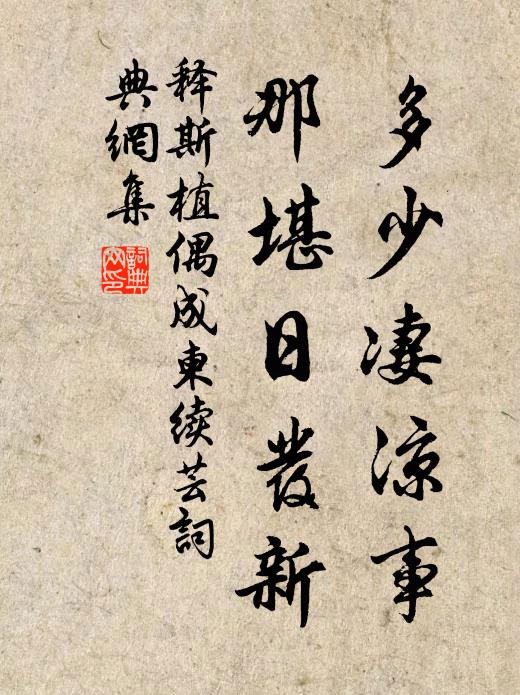 多少凄涼事
那堪日發新
释斯植偶成東续芸詞
典網集
詞典
网印